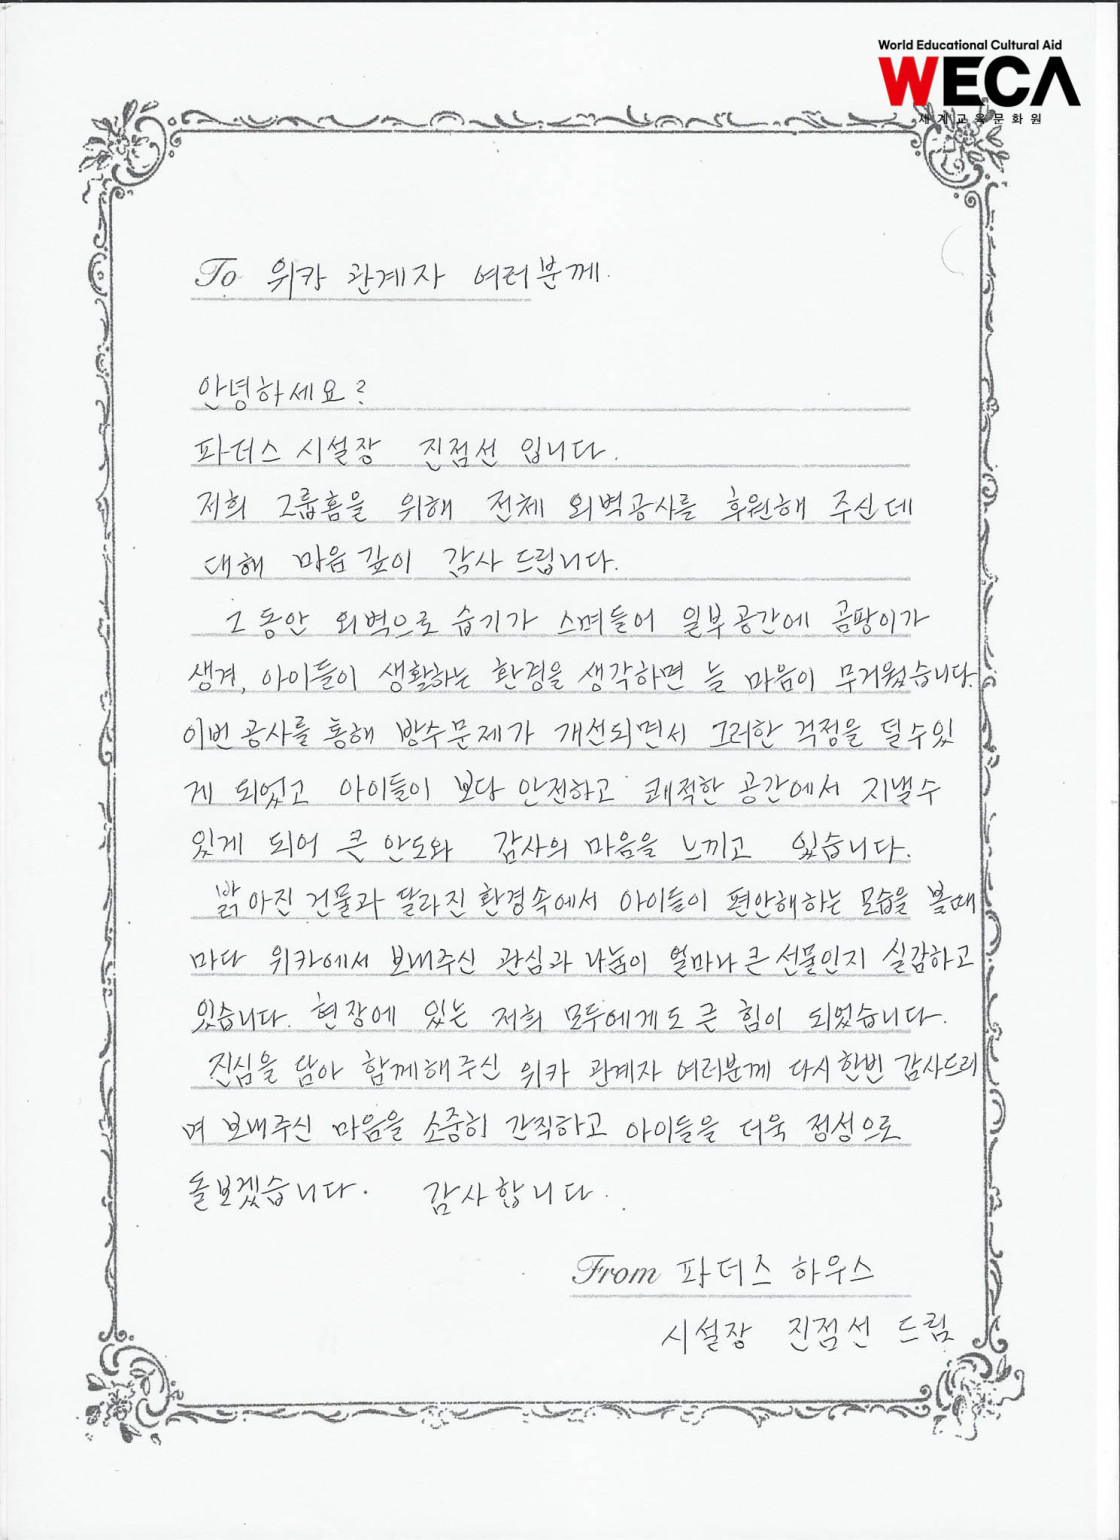 World Educational Cultural Aid
WECA
세계교육문화원
To 위카 관계자 여러분께.
안녕하세요?
파더스 시설장 진점선 입니다.
저희 그룹홈을 위해 전체 외벽공사를 후원해 주신데
대해 마음 깊이 감사 드립니다.
그 동안 외벽으로 습기가 스며들어 일부 공간에 곰팡이가
생겨, 아이들이 생활하는 환경을 생각하면 늘 마음이 무거웠습니다.
이번 공사를 통해 방수문제가 개선되면서 그러한 걱정을 덜 수 있
게 되었고 아이들이 보다 안전하고 쾌적한 공간에서 지낼 수
있게 되어 큰 안도와 감사의 마음을 느끼고 있습니다.
밝아진 건물과 달라진 환경속에서 아이들이 편안해하는 모습을 볼때
마다 위카에서 보내주신 관심과 나눔이 얼마나 큰 선물인지 실감하고
있습니다. 현장에 있는 저희 모두에게도 큰 힘이 되었습니다.
진심을 담아 함께해주신 위카 관계자 여러분께 다시 한번 감사드리
며 보내주신 마음을 소중히 간직하고 아이들을 더욱 정성으로
돌보겠습니다. 감사합니다.
From 파더즈 하우스
시설장 진점선 드림